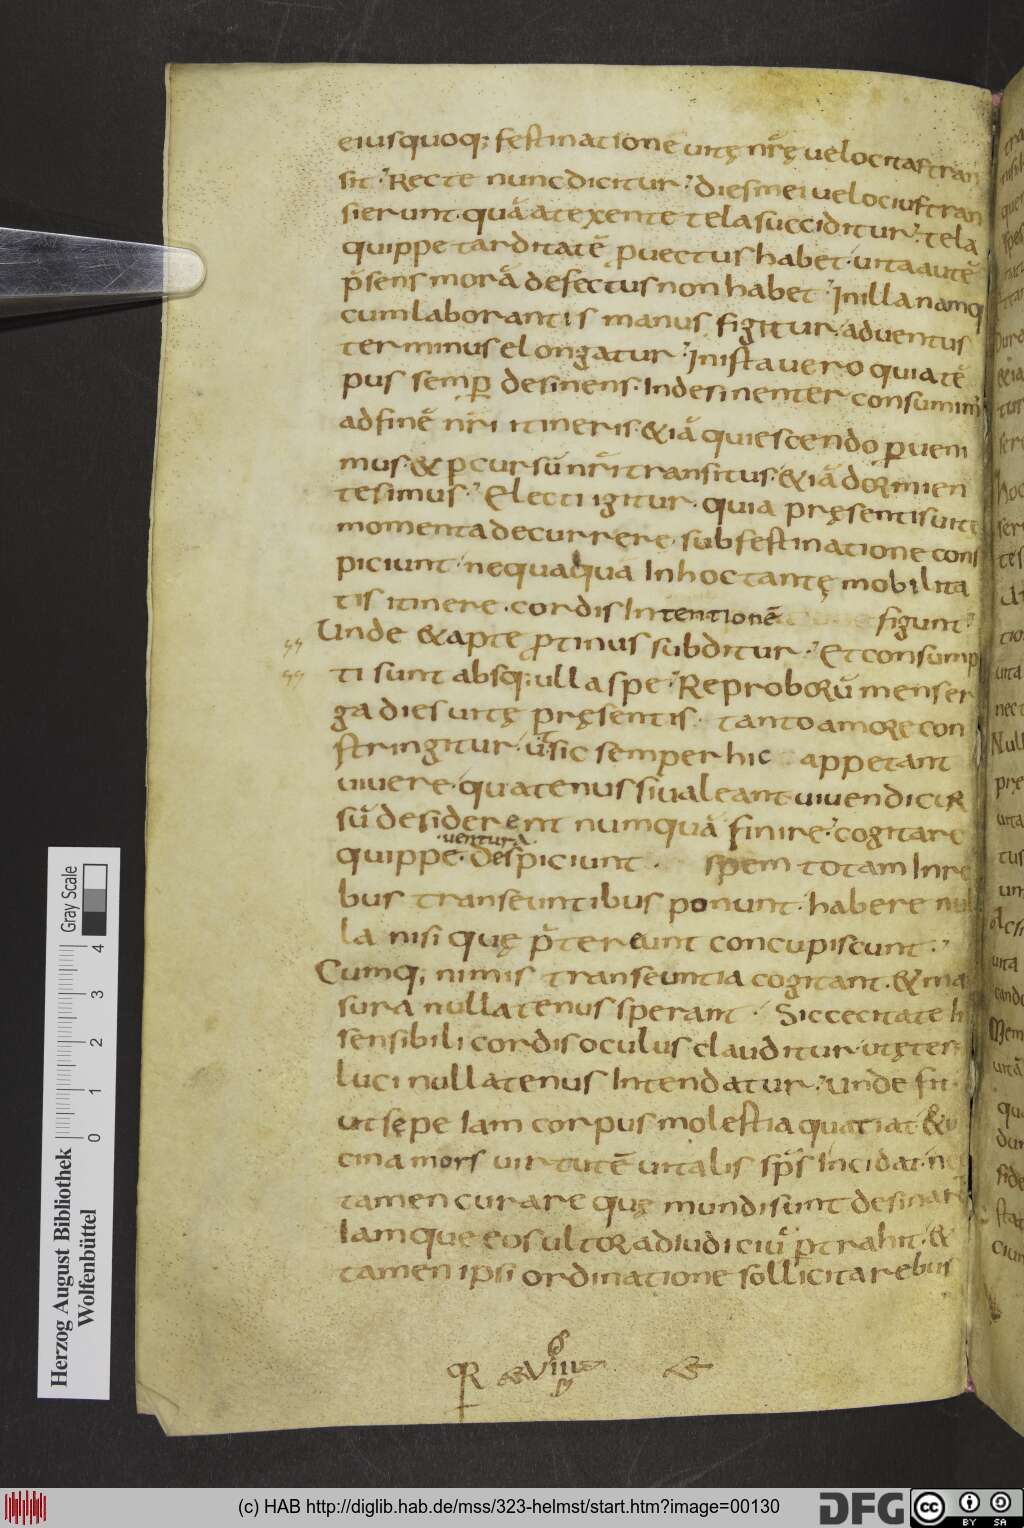 eius quoq; festinatione uitę nr̄ę uelocitas tran
sit. Recte nunc dicitur. dies mei uelocius tran
sierunt. quā a texente tela succiditur. tela
quippe tarditatē puectus habet. uita autē
p̄sens morā defectus non habet. In illa namq
cum laborantis manus figitur. aduentus
terminus elongatur. In ista uero quia tē
pus semp desinens. Indesinenter consumim̄
ad finē nr̄i itineris. & iā quiescendo perueni
mus. & p cursū nr̄i transitus. & iā dormien
tes imus. Electi igitur. quia pręsentis uitę
momenta decurrere. sub festinatione cons
piciunt. nequaqua In hoc tantę mobilita
tis itinere. cordis Intentionē figunt.
Unde & apte protinus subditur. Et consump
ti sunt absq; ulla spe. Reproborū mens er
ga dies uitę pręsentis. tanto amore con
stringitur. ut sic semper hic appetant
uiuere. quatenus si ualeant uiuendi cur
sū desiderent numquā finire. cogitare
uentura
quippe. despiciunt. spem totam In re
bus transeuntibus ponunt. habere nul
la nisi quę p̄tereunt concupiscunt.
Cumq; nimis transeuntia cogitant. & ma
sura nullatenus sperant. Sic cecitate
sensibili cordis oculus clauditur. ut ęter
luci nullatenus Intendatur. unde fit.
ut sępe Iam corpus molestia quatiat &
cina mors uirtutē uitalis sp̄s Incidat.
tamen curare quę mundi sunt desinat
Iamque eos ultor ad Iudiciū ptrahit. &
tamen ipsi ordinatione sollicitare bus
QR
VIII
Gray Scale
0 1 2 3 4
Herzog August Bibliothek
Wolfenbüttel
(c) HAB http://diglib.hab.de/mss/323-helmst/start.htm?image=00130
DFG
cc BY SA